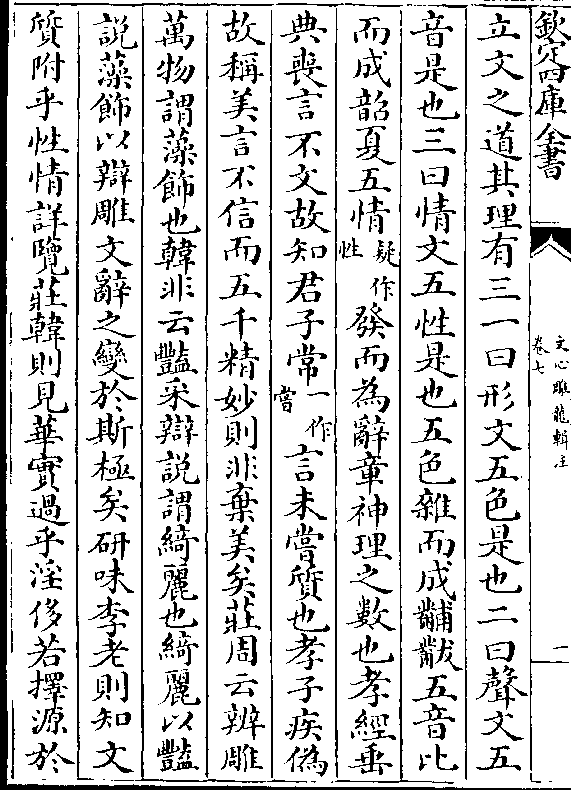 欽定四庫全書
文心雕龍輯注
卷七
一
立文之道其理有三一曰形文五色是也二曰聲文五
音是也三曰情文五性是也五色雜而成黼黻五音比
而成韶夏五情疑作性發而為辭章神理之數也孝經垂
典喪言不文故知君子常一作嘗言未嘗質也孝子疾偽
故稱美言不信而五千精妙則非棄美矣莊周云辨雕
萬物謂藻飾也韓非云豔采辯說謂綺麗也綺麗以豔
說藻飾以辯雕文辭之變於斯極矣研味李老則知文
質附乎性情詳覽莊韓則見華實過乎淫侈若擇源於